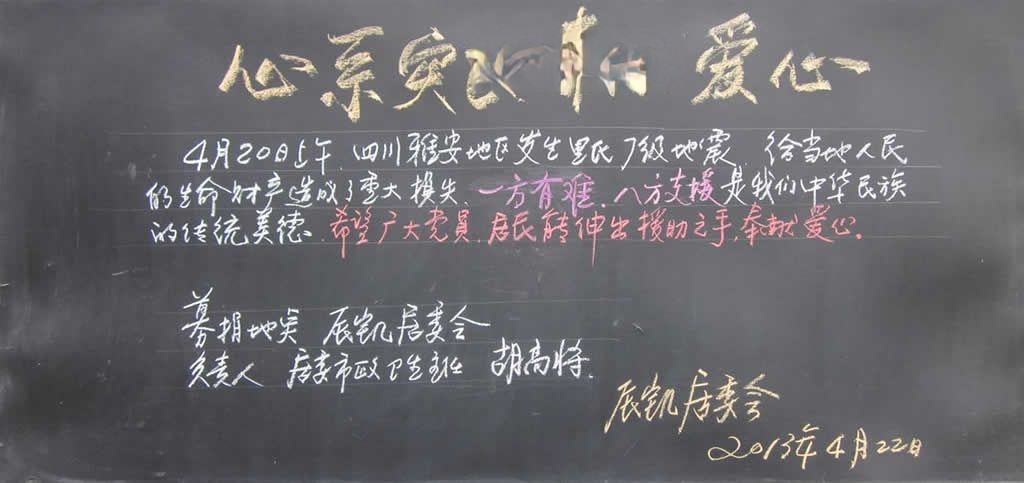 心系灾 爱心
4月20日上午.四川雅安地区发生里氏7级地震.给当地人民
的生命财产造成了重大损失.一方有难.八方支援是我们中华民族
的传统美德.希望广大党员.居民能伸出援助之手.奉献爱心.
募捐地点 辰凯居委会
负责人 居委市政卫生主任 胡高将.
辰凯居委会
2013年4月22日